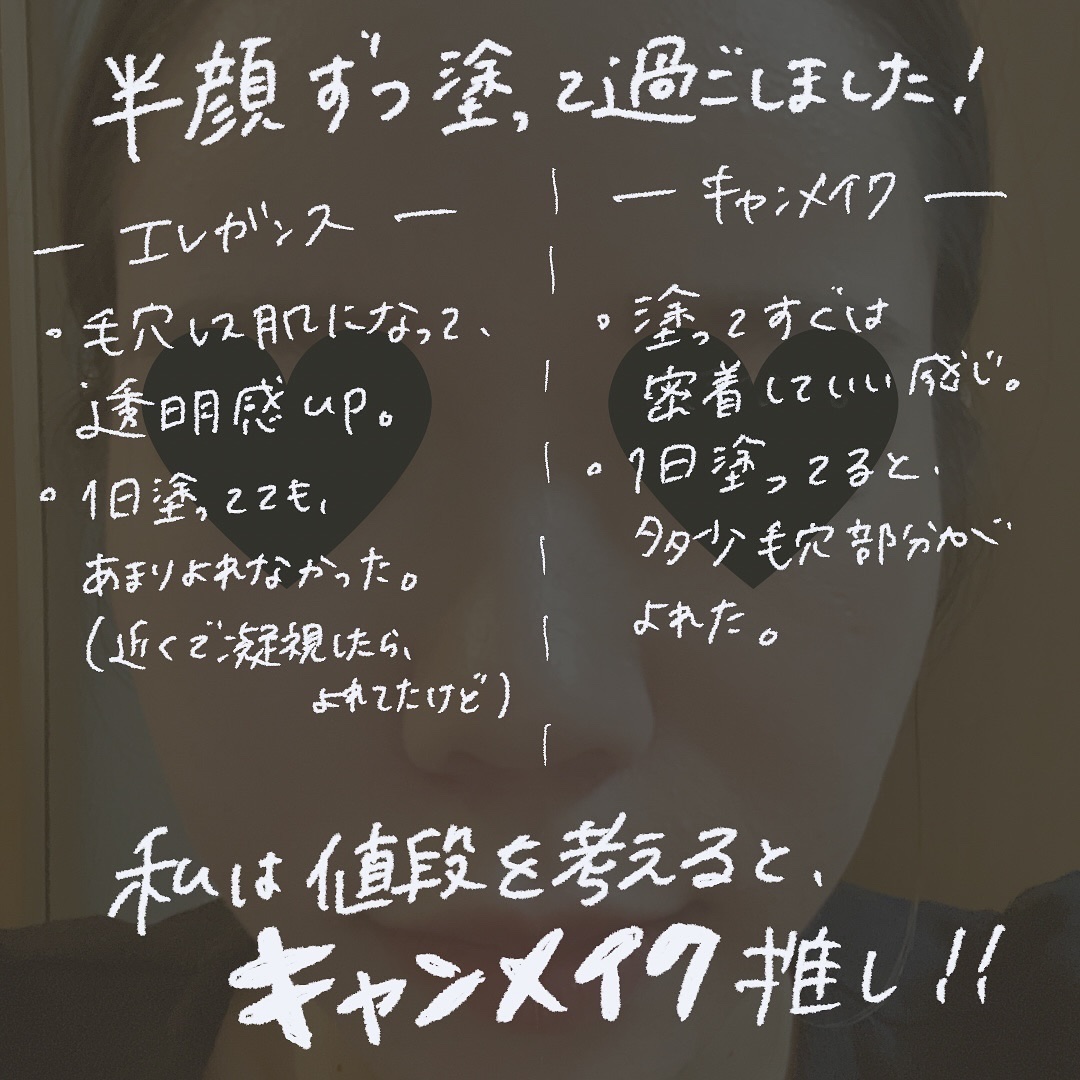 半顔ずつ塗って過ごしました！
— エレガンス —
。毛穴レス肌になって、
透明感up。
。1日塗ってても、
あまりよれなかった。
(近くで凝視したら、
よれてたけど)
— キャンメイク —
。塗ってすぐは
密着していい感じ。
。1日塗ってると、
多少毛穴部分が
よれた。
私は値段を考えると、
キャンメイク推し!!